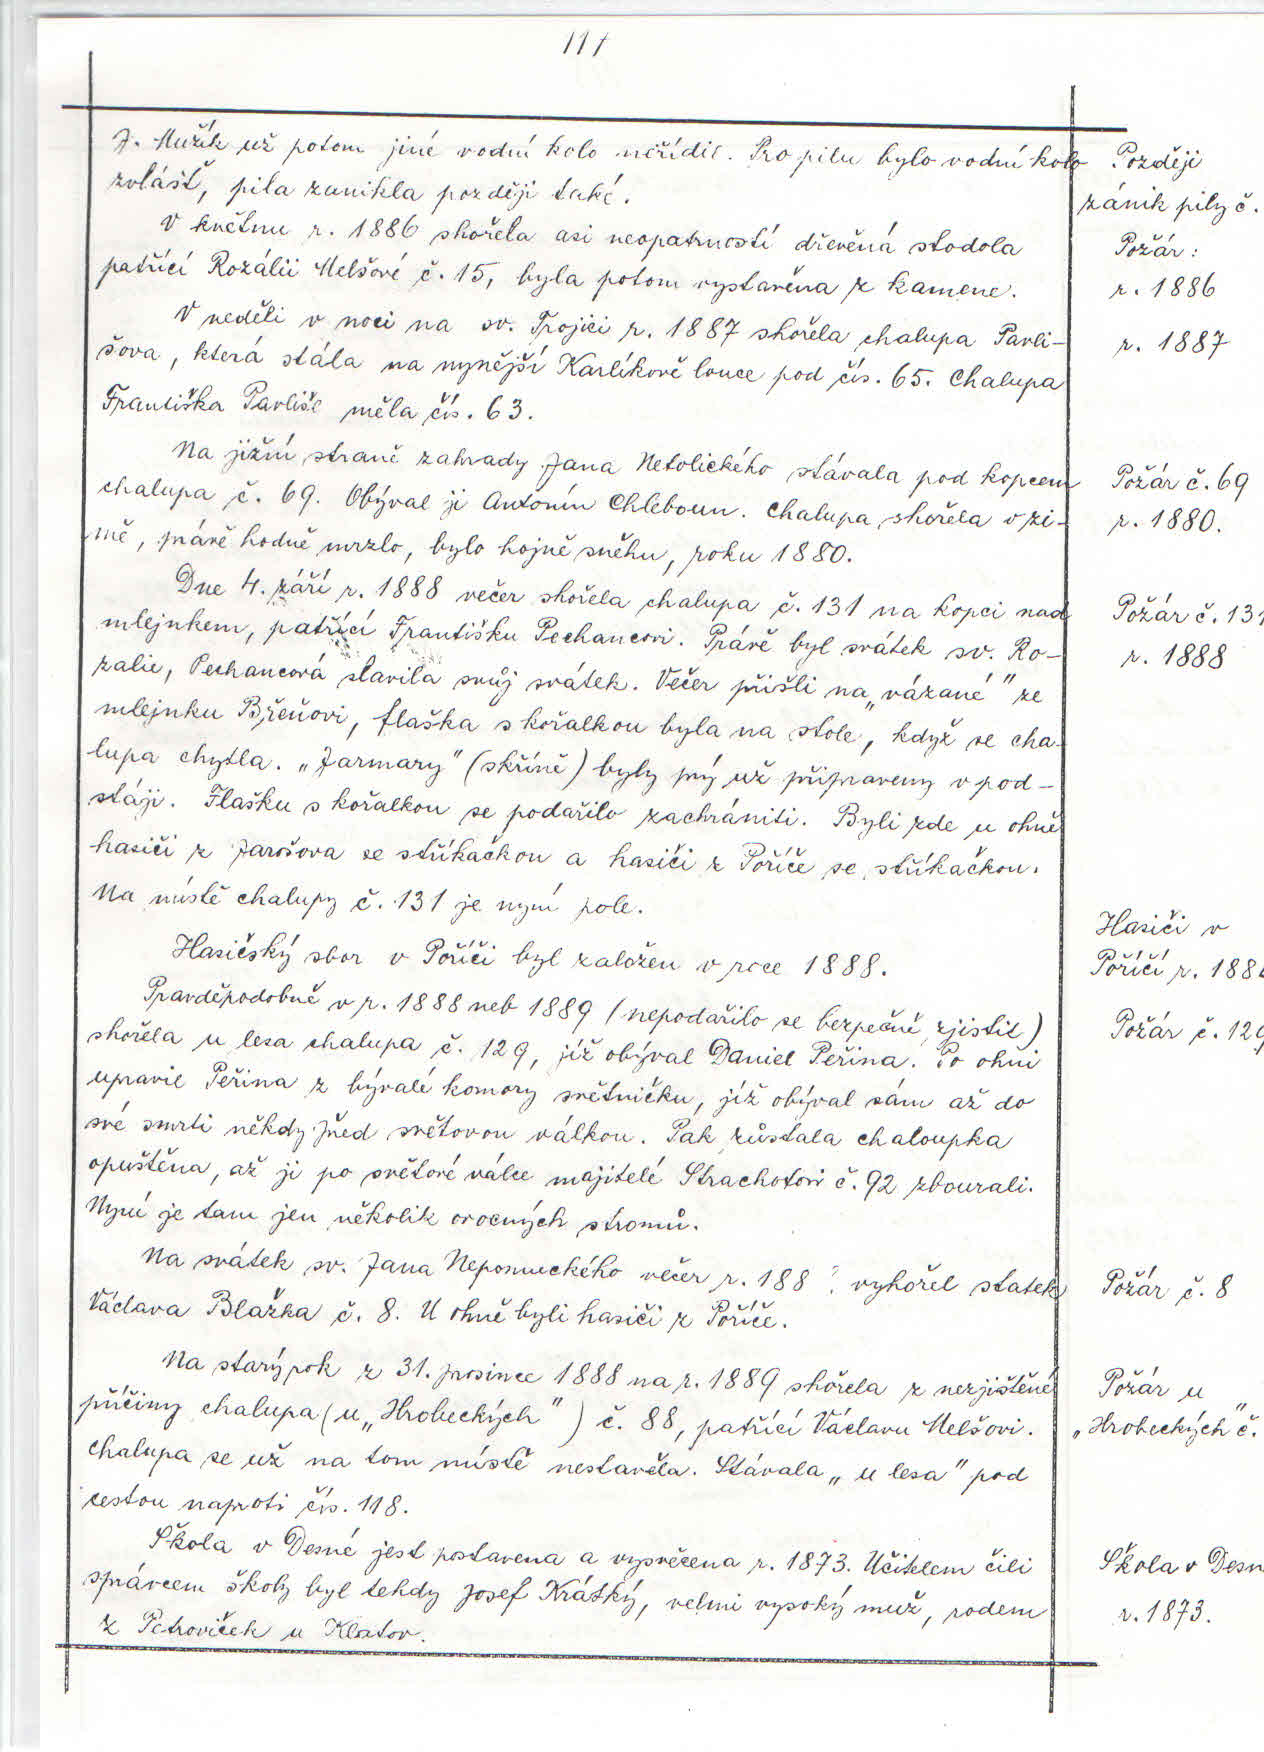 111
J. Mužík už potom jiné vodní kolo neřídil. Pro pilu bylo vodní kolo
zvlášť, pila zanikla později také.
V květnu r. 1886 shořela asi neopatrností dřevěná stodola
patřící Rozálii Melšové č. 15, byla potom vystavěna z kamene.
V neděli v noci na sv. Trojici r. 1887 shořela chalupa Pavli-
šova, která stála na nynější Karlíkově louce pod čís. 65. Chalupa
Františka Pavliše měla čís. 63.
Na jižní straně zahrady Jana Netolického stávala pod kopcem
chalupa č. 69. Obýval ji Antonín Chleboun. Chalupa shořela v zi-
mě, právě hodně mrzlo, bylo hojně sněhu, roku 1880.
Dne 4. září r. 1888 večer shořela chalupa č. 131 na kopci nad
mlejnkem, patřící Františku Pechancovi. Právě byl svátek sv. Ro-
zalie, Pechancová slavila svůj svátek. Večer přišli na „vázané" ze
mlejnku Břeňovi, flaška s kořalkou byla na stole, když se cha-
lupa chytla. „Jarmary" (skříně) byly prý už připraveny v pod-
stáji. Flašku s kořalkou se podařilo zachrániti. Byli zde u ohně
hasiči z Jarošova se stříkačkou a hasiči z Poříče se stříkačkou.
Na místě chalupy č. 131 je nyní pole.
Hasičský sbor v Poříčí byl založen v roce 1888.
Pravděpodobně v r. 1888 neb 1889 (nepodařilo se bezpečně zjistit)
shořela u lesa chalupa č. 129, jíž obýval Daniel Peřina. Po ohni
upravil Peřina z bývalé komory světničku, jíž obýval sám až do
své smrti někdy před světovou válkou. Pak zůstala chaloupka
opuštěna, až ji po světové válce majitelé Strachotovi č. 92 zbourali.
Nyní je tam jen několik ovocných stromů.
Na svátek sv. Jana Nepomuckého večer r. 188? vyhořel statek
Václava Blažka č. 8. U ohně byli hasiči z Poříče.
Na starý rok z 31. prosince 1888 na r. 1889 shořela z nezjištěné
příčiny chalupa (u „Hrobeckých") č. 88, patřící Václavu Melšovi.
Chalupa se už na tom místě nestavěla. Stávala „u lesa" pod
cestou naproti čís. 118.
Škola v Desné jest postavena a vysvěcena r. 1873. Učitelem čili
správcem školy byl tehdy Josef Krátký, velmi vysoký muž, rodem
z Petroviček u Klatov.
Později
zánik pily č.
Požár:
r. 1886
r. 1887
Požár č. 69
r. 1880.
Požár č. 131
r. 1888
Hasiči v
Poříčí r. 188
Požár č. 129
Požár č. 8
Požár u
„Hrobeckých" č.
Škola v Desn
r. 1873.